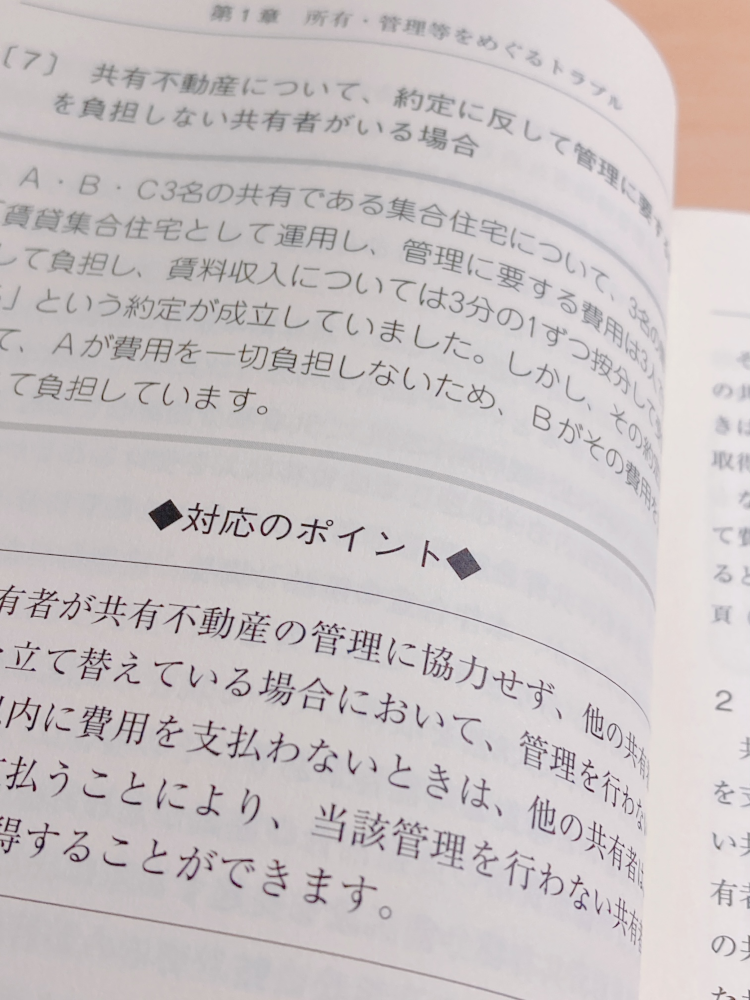 第1章 所有・管理等をめぐるトラブル
〔7〕 共有不動産について、約定に反して管理に要する
を負担しない共有者がいる場合
A・B・C3名の共有である集合住宅について、3名の
「賃貸集合住宅として運用し、管理に要する費用は3人で
して負担し、賃料収入については3分の1ずつ按分して
」という約定が成立していました。しかし、その約定
て、Aが費用を一切負担しないため、Bがその費用を
て負担しています。
◆対応のポイント◆
有者が共有不動産の管理に協力せず、他の共有
立て替えている場合において、管理を行わない
以内に費用を支払わないときは、他の共有者は
払うことにより、当該管理を行わない共有
得することができます。
の共
きは
取得
な
て賃
ると
頁
2
共
を支
い共
有者
の共